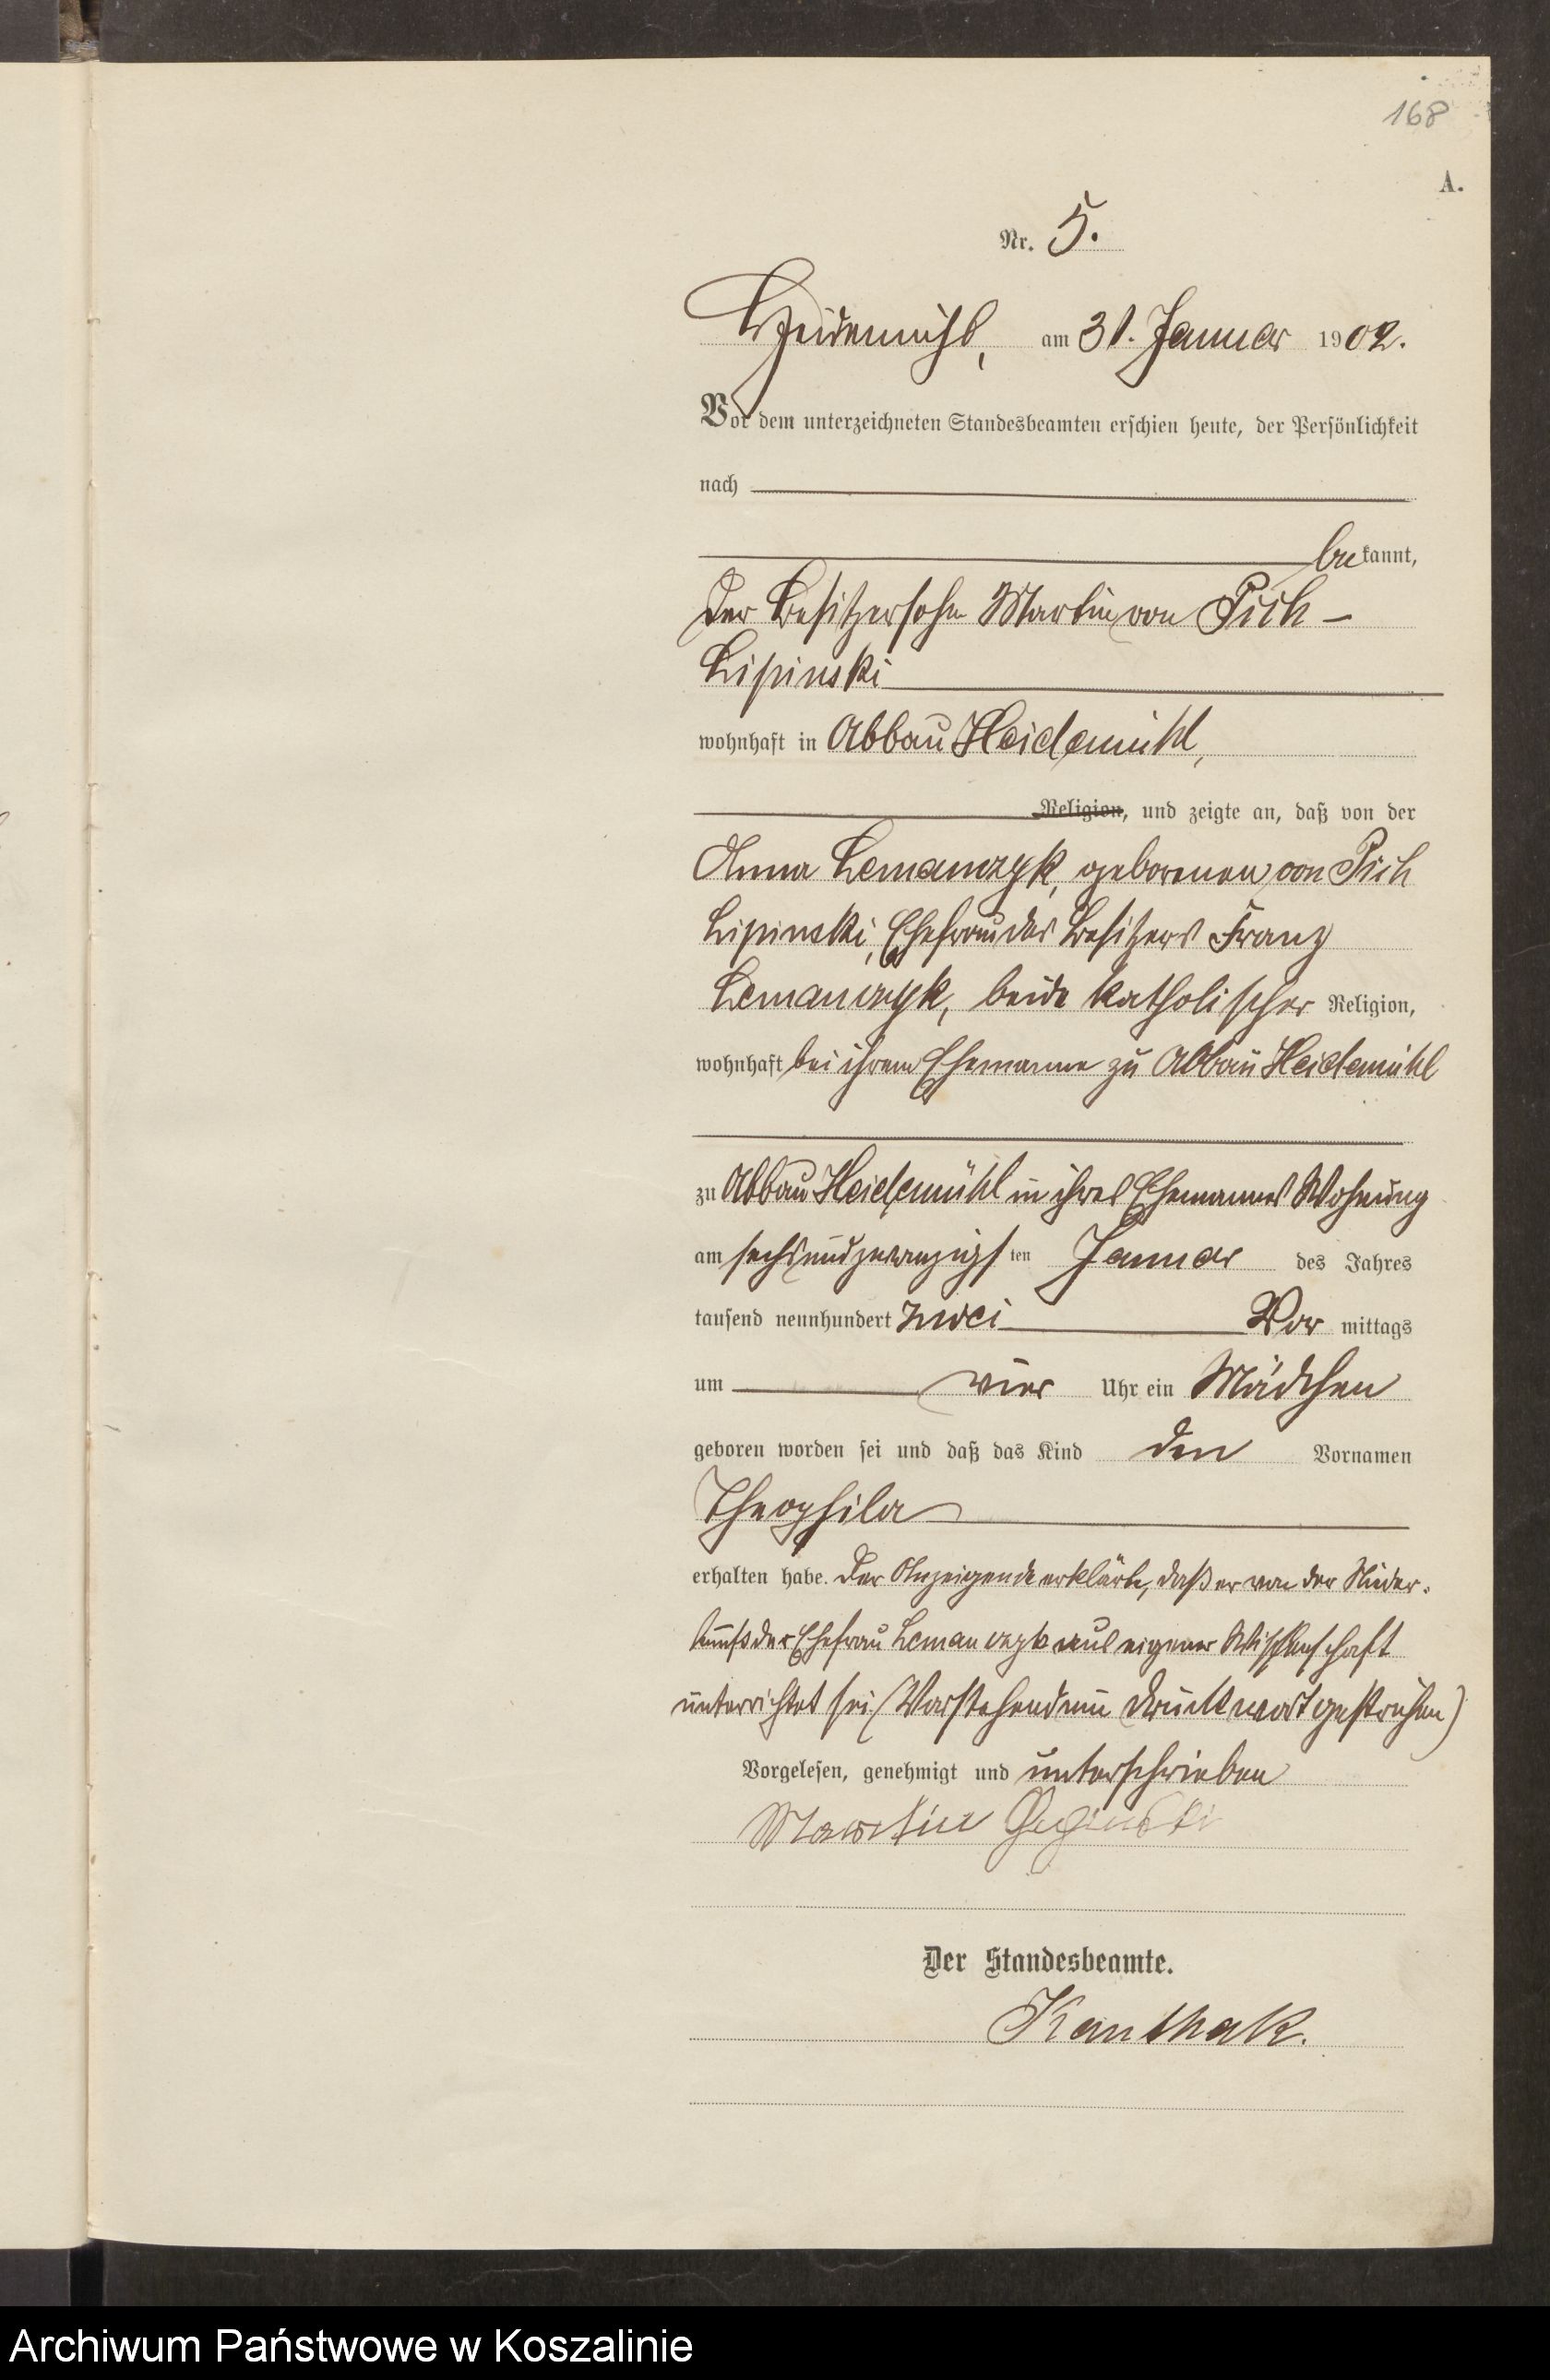 168
A.
Nr. 5.
Heidemühl, am 31. Januar 1902.
Vor dem unterzeichneten Standesbeamten erschien heute, der Persönlichkeit
nach
bekannt,
der Besitzersohn Martin von Pich-
Lipinski
wohnhaft in Abbau Heidemühl,
Religion, und zeigte an, daß von der
Anna Lemanczyk, geborenen von Pich
Lipinski, Ehefrau des Besitzers Franz
Lemanczyk, beide katholischer Religion,
wohnhaft bei ihrem Ehemanne zu Abbau Heidemühl
zu Abbau Heidemühl in ihres Ehemannes Wohnung
am sechsundzwanzigsten Januar des Jahres
tausend neunhundert zwei Vor mittags
um vier Uhr ein Mädchen
geboren worden sei und daß das Kind den Vornamen
Theophila
erhalten habe. Der Anzeigende erklärte, daß er von der Nieder-
kunft der Ehefrau Lemanczyk aus eigener Wissenschaft
unterrichtet sei (Vorstehend ein Druckwort gestrichen)
Vorgelesen, genehmigt und unterschrieben
Martin Lipinski
Der Standesbeamte.
Kanthak.
Archiwum Państwowe w Koszalinie